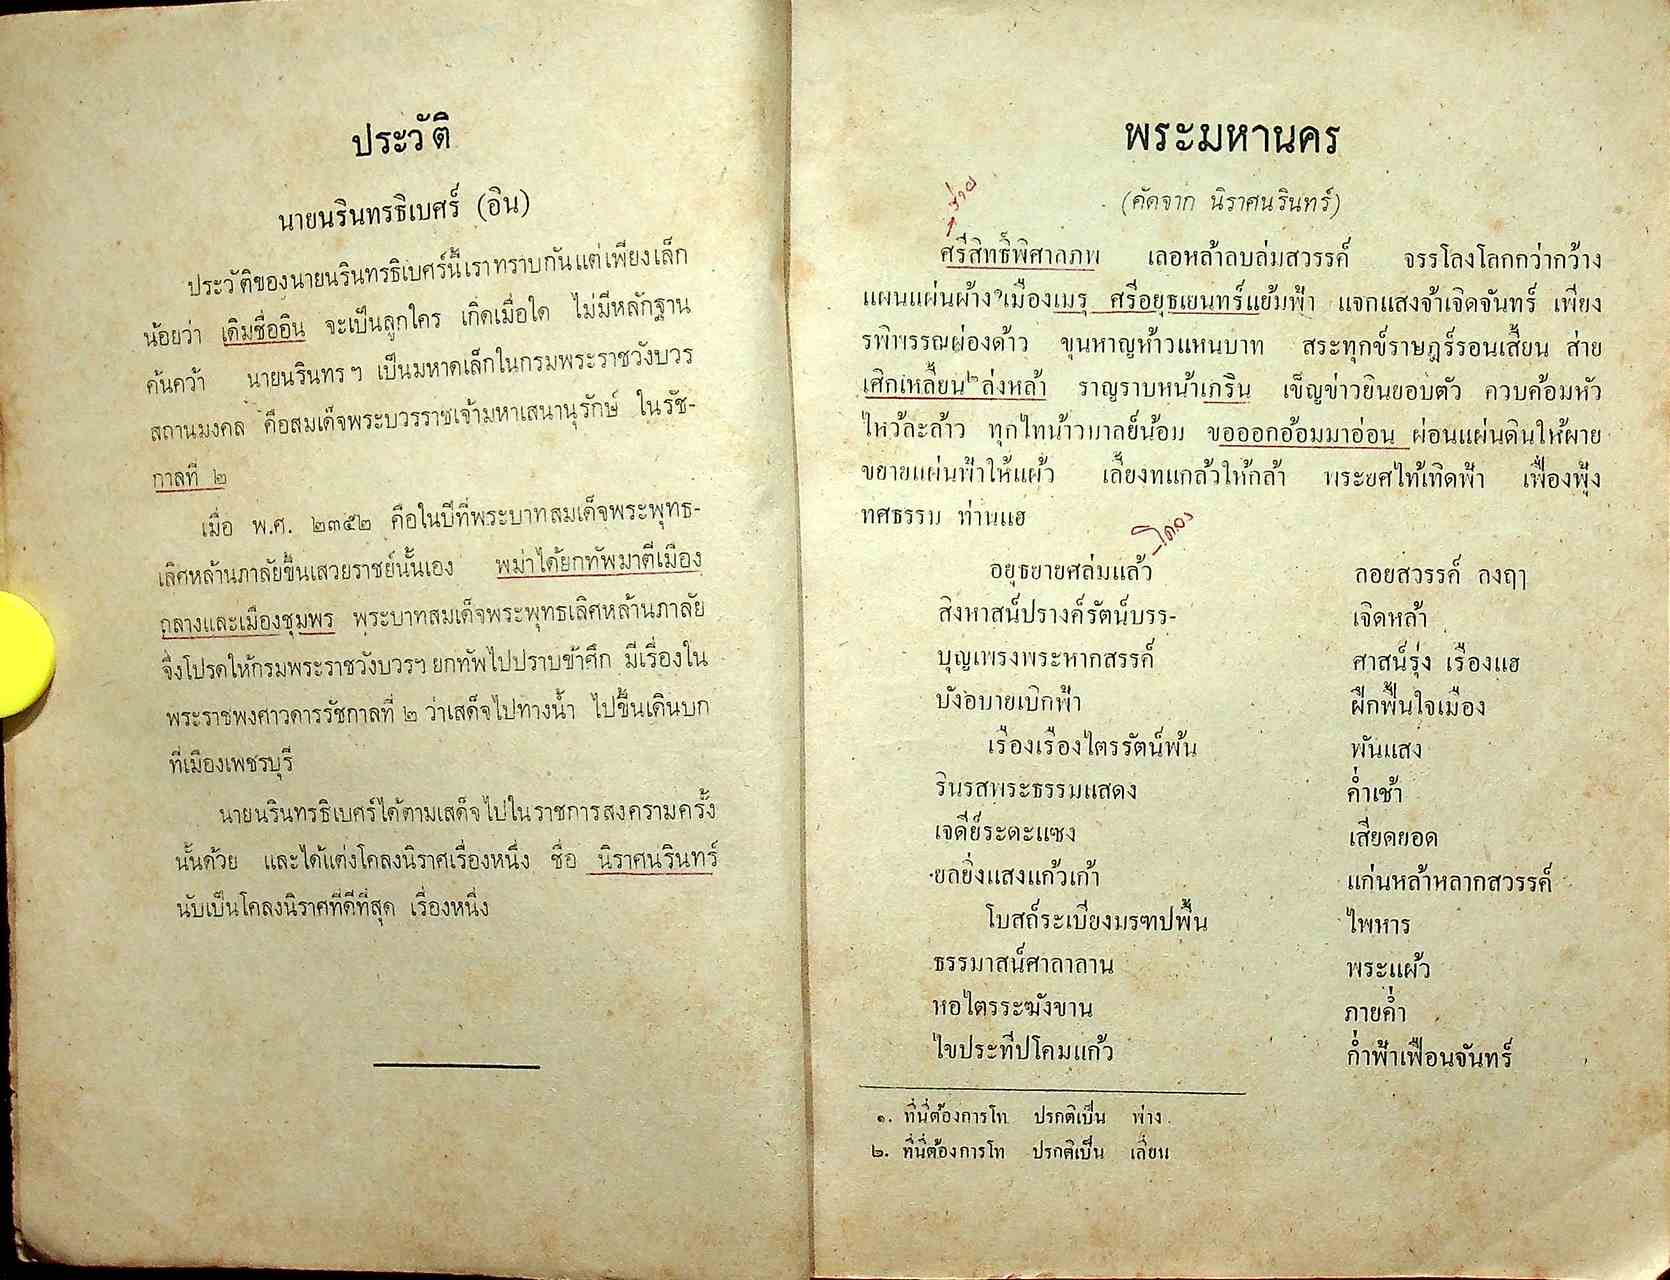 ประวัติ
นายนรินทรธิเบศร์ (อิน)
ประวัติของนายนรินทรธิเบศร์นี้เราทราบกันแต่เพียงเล็ก
น้อยว่า เดิมชื่ออิน จะเป็นลูกใคร เกิดเมื่อใด ไม่มีหลักฐาน
ค้นคว้า นายนรินทรฯ เป็นมหาดเล็กในกรมพระราชวังบวร
สถานมงคล คือสมเด็จพระบวรราชเจ้ามหาเสนานุรักษ์ ในรัช-
กาลที่ ๒
เมื่อ พ.ศ. ๒๓๕๒ คือในปีที่พระบาทสมเด็จพระพุทธ-
เลิศหล้านภาลัยขึ้นเสวยราชย์นั้นเอง พม่าได้ยกทัพมาตีเมือง
ถลางและเมืองชุมพร พระบาทสมเด็จพระพุทธเลิศหล้านภาลัย
จึงโปรดให้กรมพระราชวังบวรฯ ยกทัพไปปราบข้าศึก มีเรื่องใน
พระราชพงศาวดารรัชกาลที่ ๒ ว่าเสด็จไปทางน้ำ ไปขึ้นเดินบก
ที่เมืองเพชรบุรี
นายนรินทรธิเบศร์ได้ตามเสด็จไปในราชการสงครามครั้ง
นั้นด้วย และได้แต่งโคลงนิราศเรื่องหนึ่ง ชื่อ นิราศนรินทร์
นับเป็นโคลงนิราศที่ดีที่สุด เรื่องหนึ่ง
พระมหานคร
(คัดจาก นิราศนรินทร์)
ร่าย
ศรีสิทธิ์พิศาลภพ เลอหล้าลบล่มสวรรค์ จรรโลงโลกกว่ากว้าง
แผนแผ่นผ้าง๑เมืองเมรุ ศรีอยุธเยนทร์แย้มฟ้า แจกแสงจ้าเจิดจันทร์ เพียง
รพิพรรณผ่องด้าว ขุนหาญห้าวแหนบาท สระทุกข์ราษฎร์รอนเสี้ยน ส่าย
เศิกเหลี้ยน๒ล่งหล้า ราญราบหน้าเกริน เข็ญข่าวยินยอบตัว ควบค้อมหัว
ไหว้ละล้าว ทุกไทน้าวมาลย์น้อม ขอออกอ้อมมาอ่อน ผ่อนแผ่นดินให้ผาย
ขยายแผ่นฟ้าให้แผ้ว เลี้ยงทแกล้วให้กล้า พระยศไท้เทิดฟ้า เฟื่องฟุ้ง
ทศธรรม ท่านแฮ
โคลง
อยุธยายศล่มแล้ว ลอยสวรรค์ ลงฤๅ
สิงหาสน์ปรางค์รัตน์บรร- เจิดหล้า
บุญเพรงพระหากสรรค์ ศาสน์รุ่ง เรืองแฮ
บังอบายเบิกฟ้า ฝึกฟื้นใจเมือง
เรืองเรืองไตรรัตน์พ้น พันแสง
รินรสพระธรรมแสดง ค่ำเช้า
เจดีย์ระดะแซง เสียดยอด
ยลยิ่งแสงแก้วเก้า แก่นหล้าหลากสวรรค์
โบสถ์ระเบียงมรฑปพื้น ไพหาร
ธรรมาสน์ศาลาลาน พระแผ้ว
หอไตรระฆังขาน ภายค่ำ
ไขประทีปโคมแก้ว ก่ำฟ้าเฟือนจันทร์
๑. ที่นี่ต้องการโท ปรกติเป็น พ่าง
๒. ที่นี่ต้องการโท ปรกติเป็น เลี่ยน